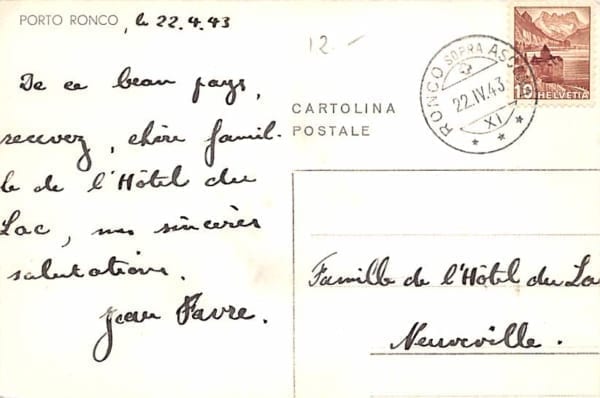 PORTO RONCO, le 22.4.43
12.-
De ce beau pays,
recevez, chère famil-
le de l'Hôtel du
Lac, mes sincères
salutations.
Jean Favre.
CARTOLINA
POSTALE
RONCO SOPRA ASCONA
22.IV.43
XI
10 HELVETIA
Famille de l'Hôtel du Lac
Neuveville.